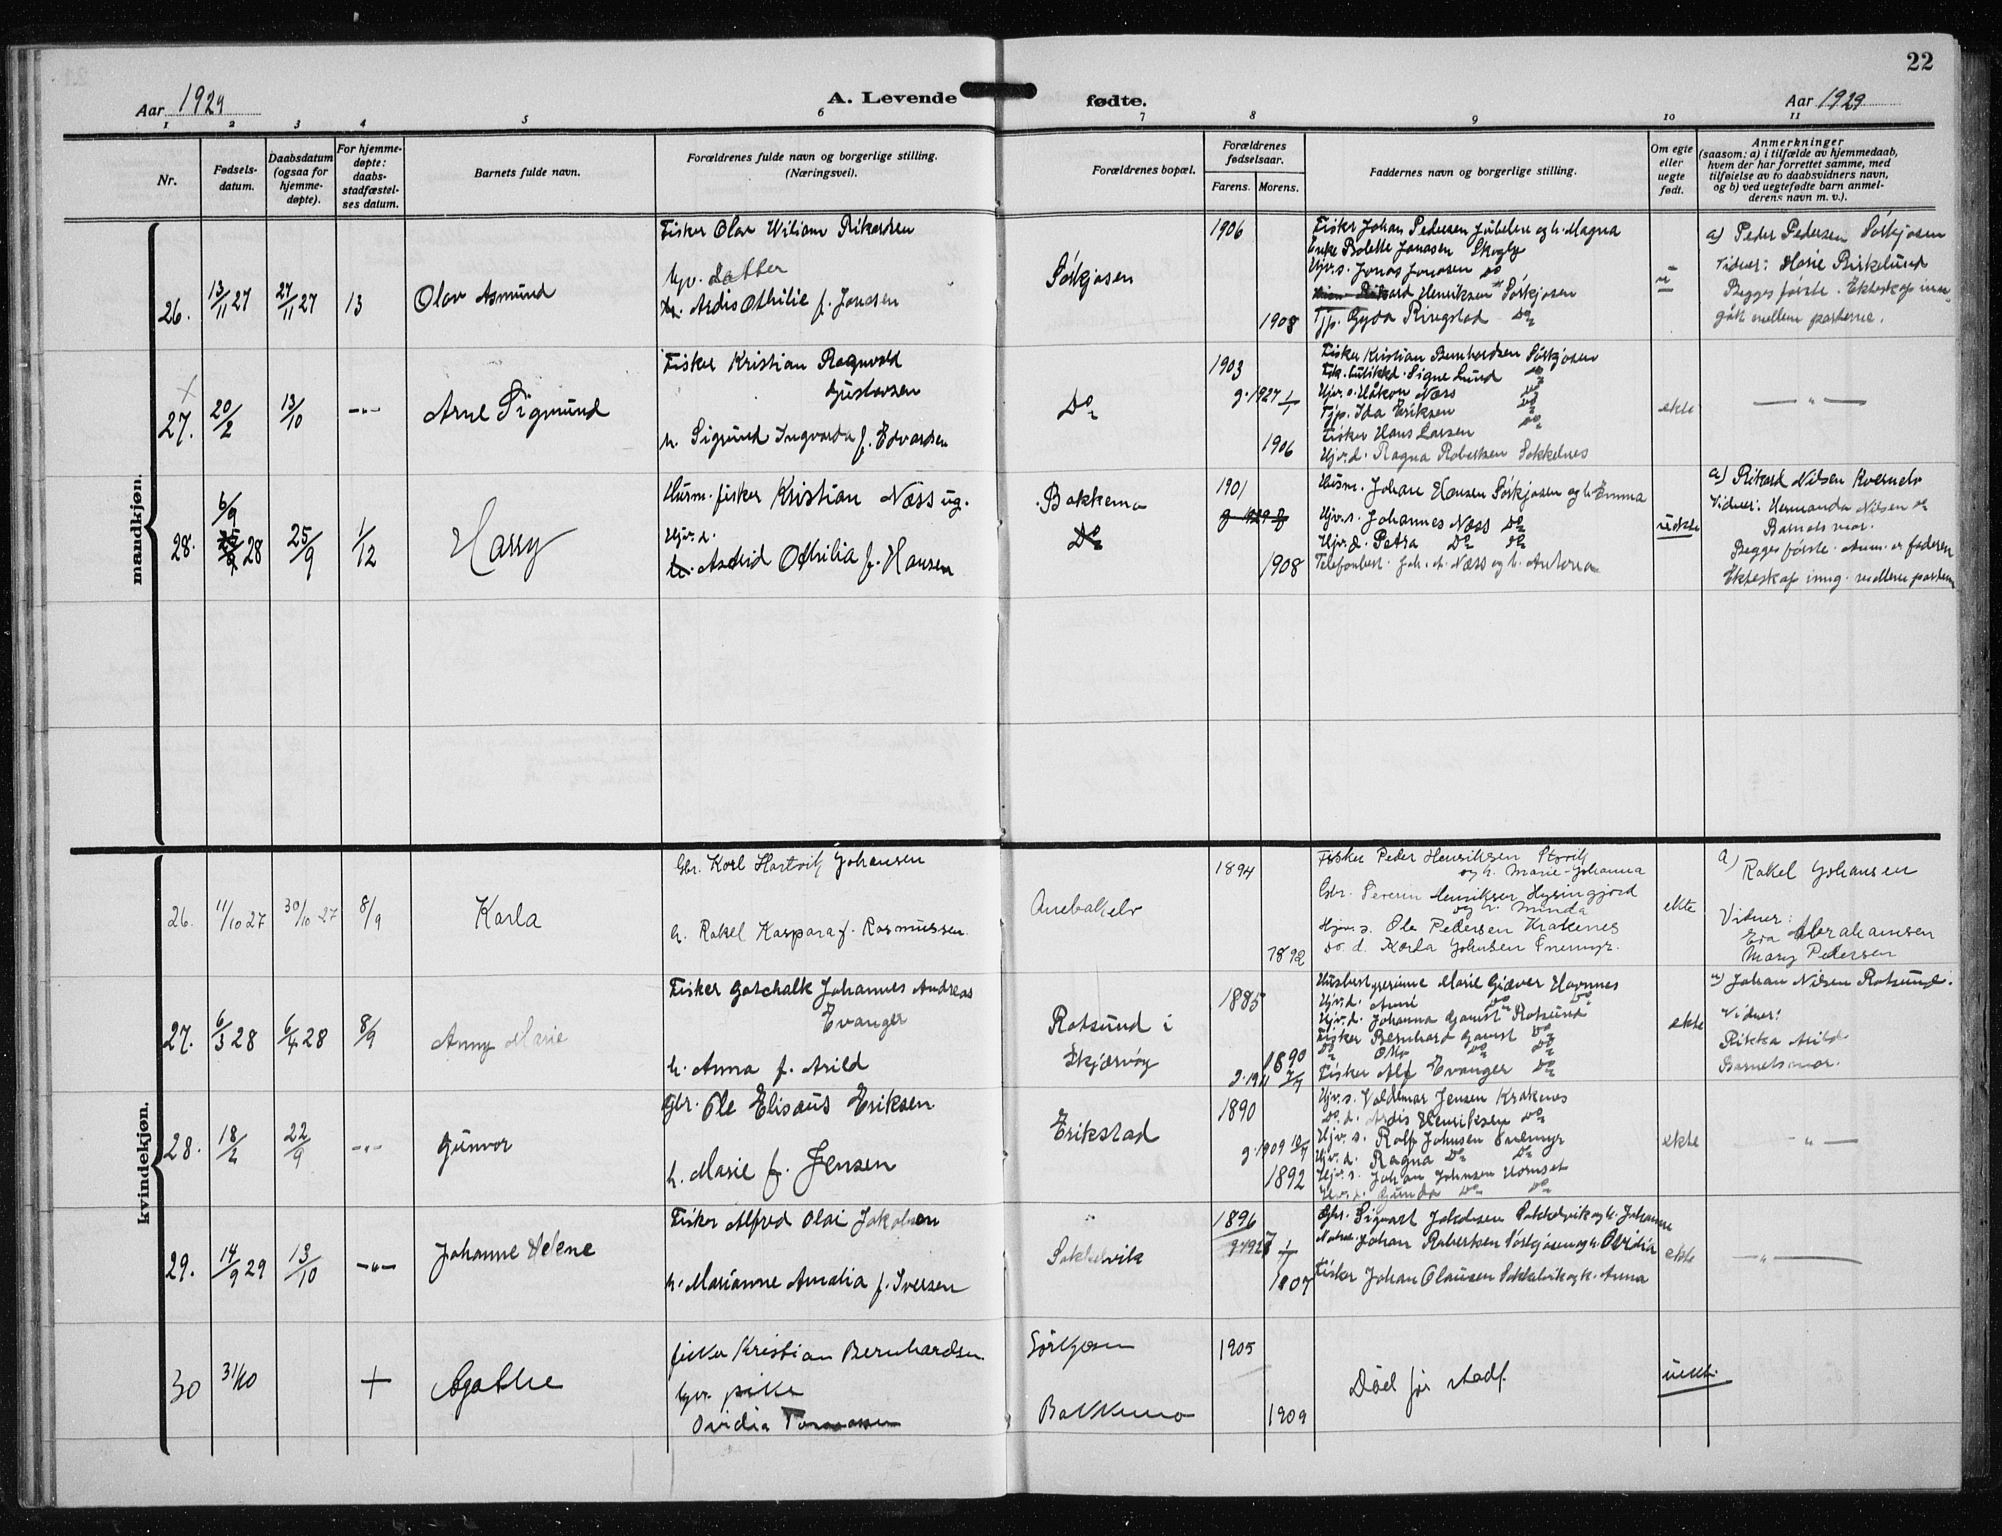 22
Aar 1929
A. Levende fødte.
Aar 1929
1 2 3 4 5 6 7 8 9 10 11
Nr.
Fødsels-
datum.
Daabsdatum
(ogsaa for
hjemme-
døpte).
For hjemme-
døpte:
daabs-
stadfæstel-
ses datum.
Barnets fulde navn.
Forældrenes fulde navn og borgerlige stilling.
(Næringsvei).
Forældrenes bopæl.
Forældrenes
fødselsaar.
Farens. Morens.
Faddernes navn og borgerlige stilling.
Om egte
eller
uegte
født.
Anmerkninger
(saasom: a) i tilfælde av hjemmedaab,
hvem der har forrettet samme, med
tilføielse av to daabsvidners navn,
og b) ved uegtefødte barn anmel-
derens navn m. v.).
mandkjøn.
26.
13/11 27
27/11 27
13
Olav Asmund
Fisker Olav Wiliam Rikardsen
Hjv. datter
Ardis Othilie f. Jonasen
Sørkjosen
1906
1908
Fisker Johan Pedersen Jubelen og h. Magna
Enke Bolette Jonasen Skogly
Hjv. s. Jonas Jonasen do
Rikard Henriksen Sørkjosen
Tjp. Gyda Ringstad Do
a) Peder Pedersen Sørkjosen
Vidner: Marie Birkelund
Begges første. Ekteskap inn-
gåt mellem parterne.
27.
20/2
13/10
-"-
Arne Sigmund
Fisker Kristian Ragnvald
Gustavsen
h. Sigrund Ingvarda f. Edvardsen
Do
1903
g. 1927 1/1
1906
Fisker Kristian Bernhardsen Sørkjosen
Signe Lund Do
Hjv. s. Håkon Næss Do
Tjp. Ida Eriksen Do
Fisker Hans Larsen Do
Hjv. d. Ragna Robertsen Sokkelnes
ekte
-"-
28.
6/9
28
25/9
1/12
Harry
Husm. fisker Kristian Næss ug.
Hjv. d.
h. Astrid Othilia f. Hansen
Bakkemo
Do
1901
1908
Husm. Johan Hansen Sørkjosen og h. Emma
Hjv. s. Johannes Næss Do
Hjv. d. Petra Do Do
Telefonbest. Joh. A. Næss og h. Antona
uekte
a) Rikard Nilsen Kvernelv
Vidner: Hermanda Nilsen og
Barnets mor.
Begges første. Anm. er faderen
Ekteskap inng. mellem parterne
kvindekjøn.
26.
11/10 27
30/10 27
8/9
Karla
Gbr. Karl Hartvik Johansen
h. Rakel Kaspara f. Rasmussen
1894
1892
Fisker Peder Henriksen Storvik
og h. Marie-Johanna
Gbr. Severin Henriksen Hysingjord
og h. Minda
Hjv. s. Ole Pedersen Krakenes
do d. Karla Johnsen Snemyr.
ekte
a) Rakel Johansen
Vidner:
Eva Abrahamsen
Mary Pedersen
27.
6/3 28
6/4 28
8/9
Anny Marie
Fisker Gotchalk Johannes Andreas
Evanger
h. Anna f. Arild
Rotsund i
Skjærvøy
1885
1890
g. 1911 2/7
Husbestyrerinne Marie Giæver Havnnes
Hjv. d. Anne do Do
Hjv. d. Johanna Gamst Rotsund
Fisker Bernhard Gamst Do
Do Otto Do Do
Fisker Alf Evanger Do
ekte
a) Johan Nilsen Rotsund.
Vidner:
Rikka Arild
Barnets mor.
28.
18/2
22/9
-"-
Gunvor
Gbr. Ole Elisæus Eriksen
h. Marie f. Jensen
Erikstad
1890
g. 1909 10/7
1892
Hjv. s. Valdemar Jensen Krakenes
Do. d. Ardis Henriksen Do
Hjv. s. Rolf Johnsen Snemyr
Hjv. d. Ragna Do Do
Hjv. s. Johan Johnsen Hornset
Hjv. d. Gunda Do Do
ekte
-"-
29.
14/9 29
13/10
-"-
Johanne Helene
Fisker Alfred Olai Jakobsen
h. Marianne Amalia f. Iversen
Sokkelvik
1896
1/1
1907
Gbr. Sigvart Jakobsen Sokkelvik og h. Johanne
Johan Robertsen Sørkjosen og h. Ovidia
Fisker Johan Olaussen Sokkelvik og h. Anna
ekte
-"-
30
31/10
+
Agathe
fisker Kristian Bernhardsen
hjv. pike
Ovidia Tomassen
Sørkjosen
Bakkemo
1905
1909
Død før stadf.
uekte